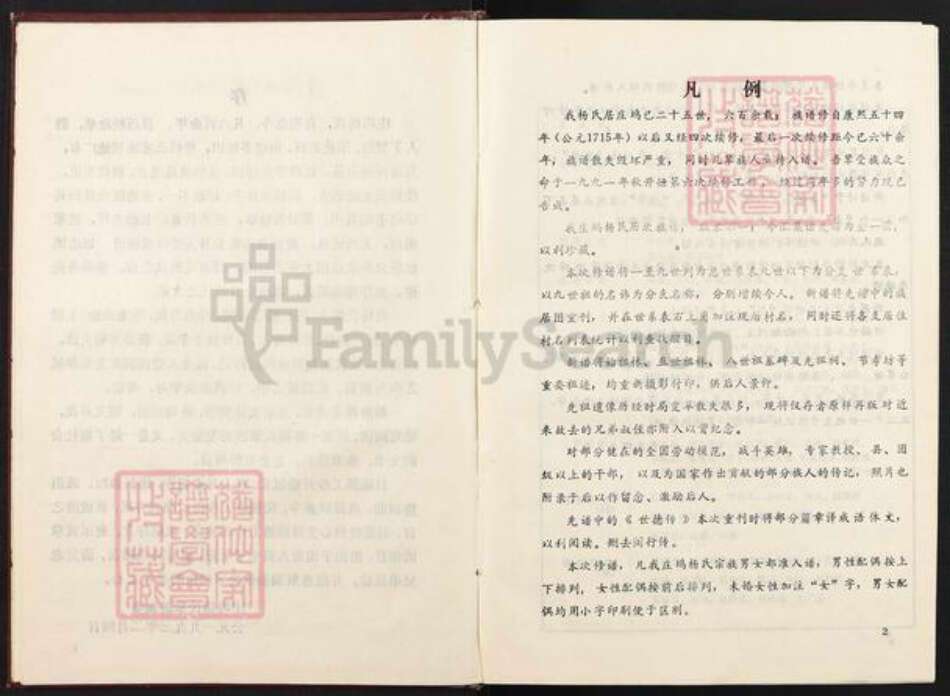 凡 例
我杨氏居庄坞已二十五世，六百余载；族谱修自康熙五十四
年（公元1715年）以后又经四次续修，最后一次续修距今已六十余
年，族谱散失毁坏严重，同时几辈族人亟待入谱，吾辈受族众之
命于一九九一年秋开始第六次续修工作，经过两年多的努力现已
告成。
我庄坞杨氏历次族谱，
以利珍藏。
本次修谱将一至九世列为总世系表九世以下为分支世系表，
以九世祖的名讳为分支名称，分别增续今人。新谱将先谱中的族
居图重刊，并在世系表右上角加注现居村名，同时还将各支居住
村名列表统计以利查找醒目。
新谱将始祖林、五世祖林、八世祖墓碑及先祖祠、节孝坊等
重要祖迹，均重新摄影付印，供后人景仰。
先祖遗像历经时局变革散失很多，现将仅存者原样再版对近
来故去的兄弟叔侄亦附入以资纪念。
对部分健在的全国劳动模范，战斗英雄，专家教授、县、团
级以上的干部，以及为国家作出贡献的部分族人的传记，照片也
附录于后以作留念、激励后人。
先谱中的《世德传》本次重刊时将部分篇章译成语体文，
以利阅读。删去闲行传。
本次修谱，凡我庄坞杨氏宗族男女都准入谱，男性配偶按上
下排列，女性配偶按前后排列，未婚女性加注“女”字，男女配
偶均用小字印刷便于区别。
2
FamilySearch